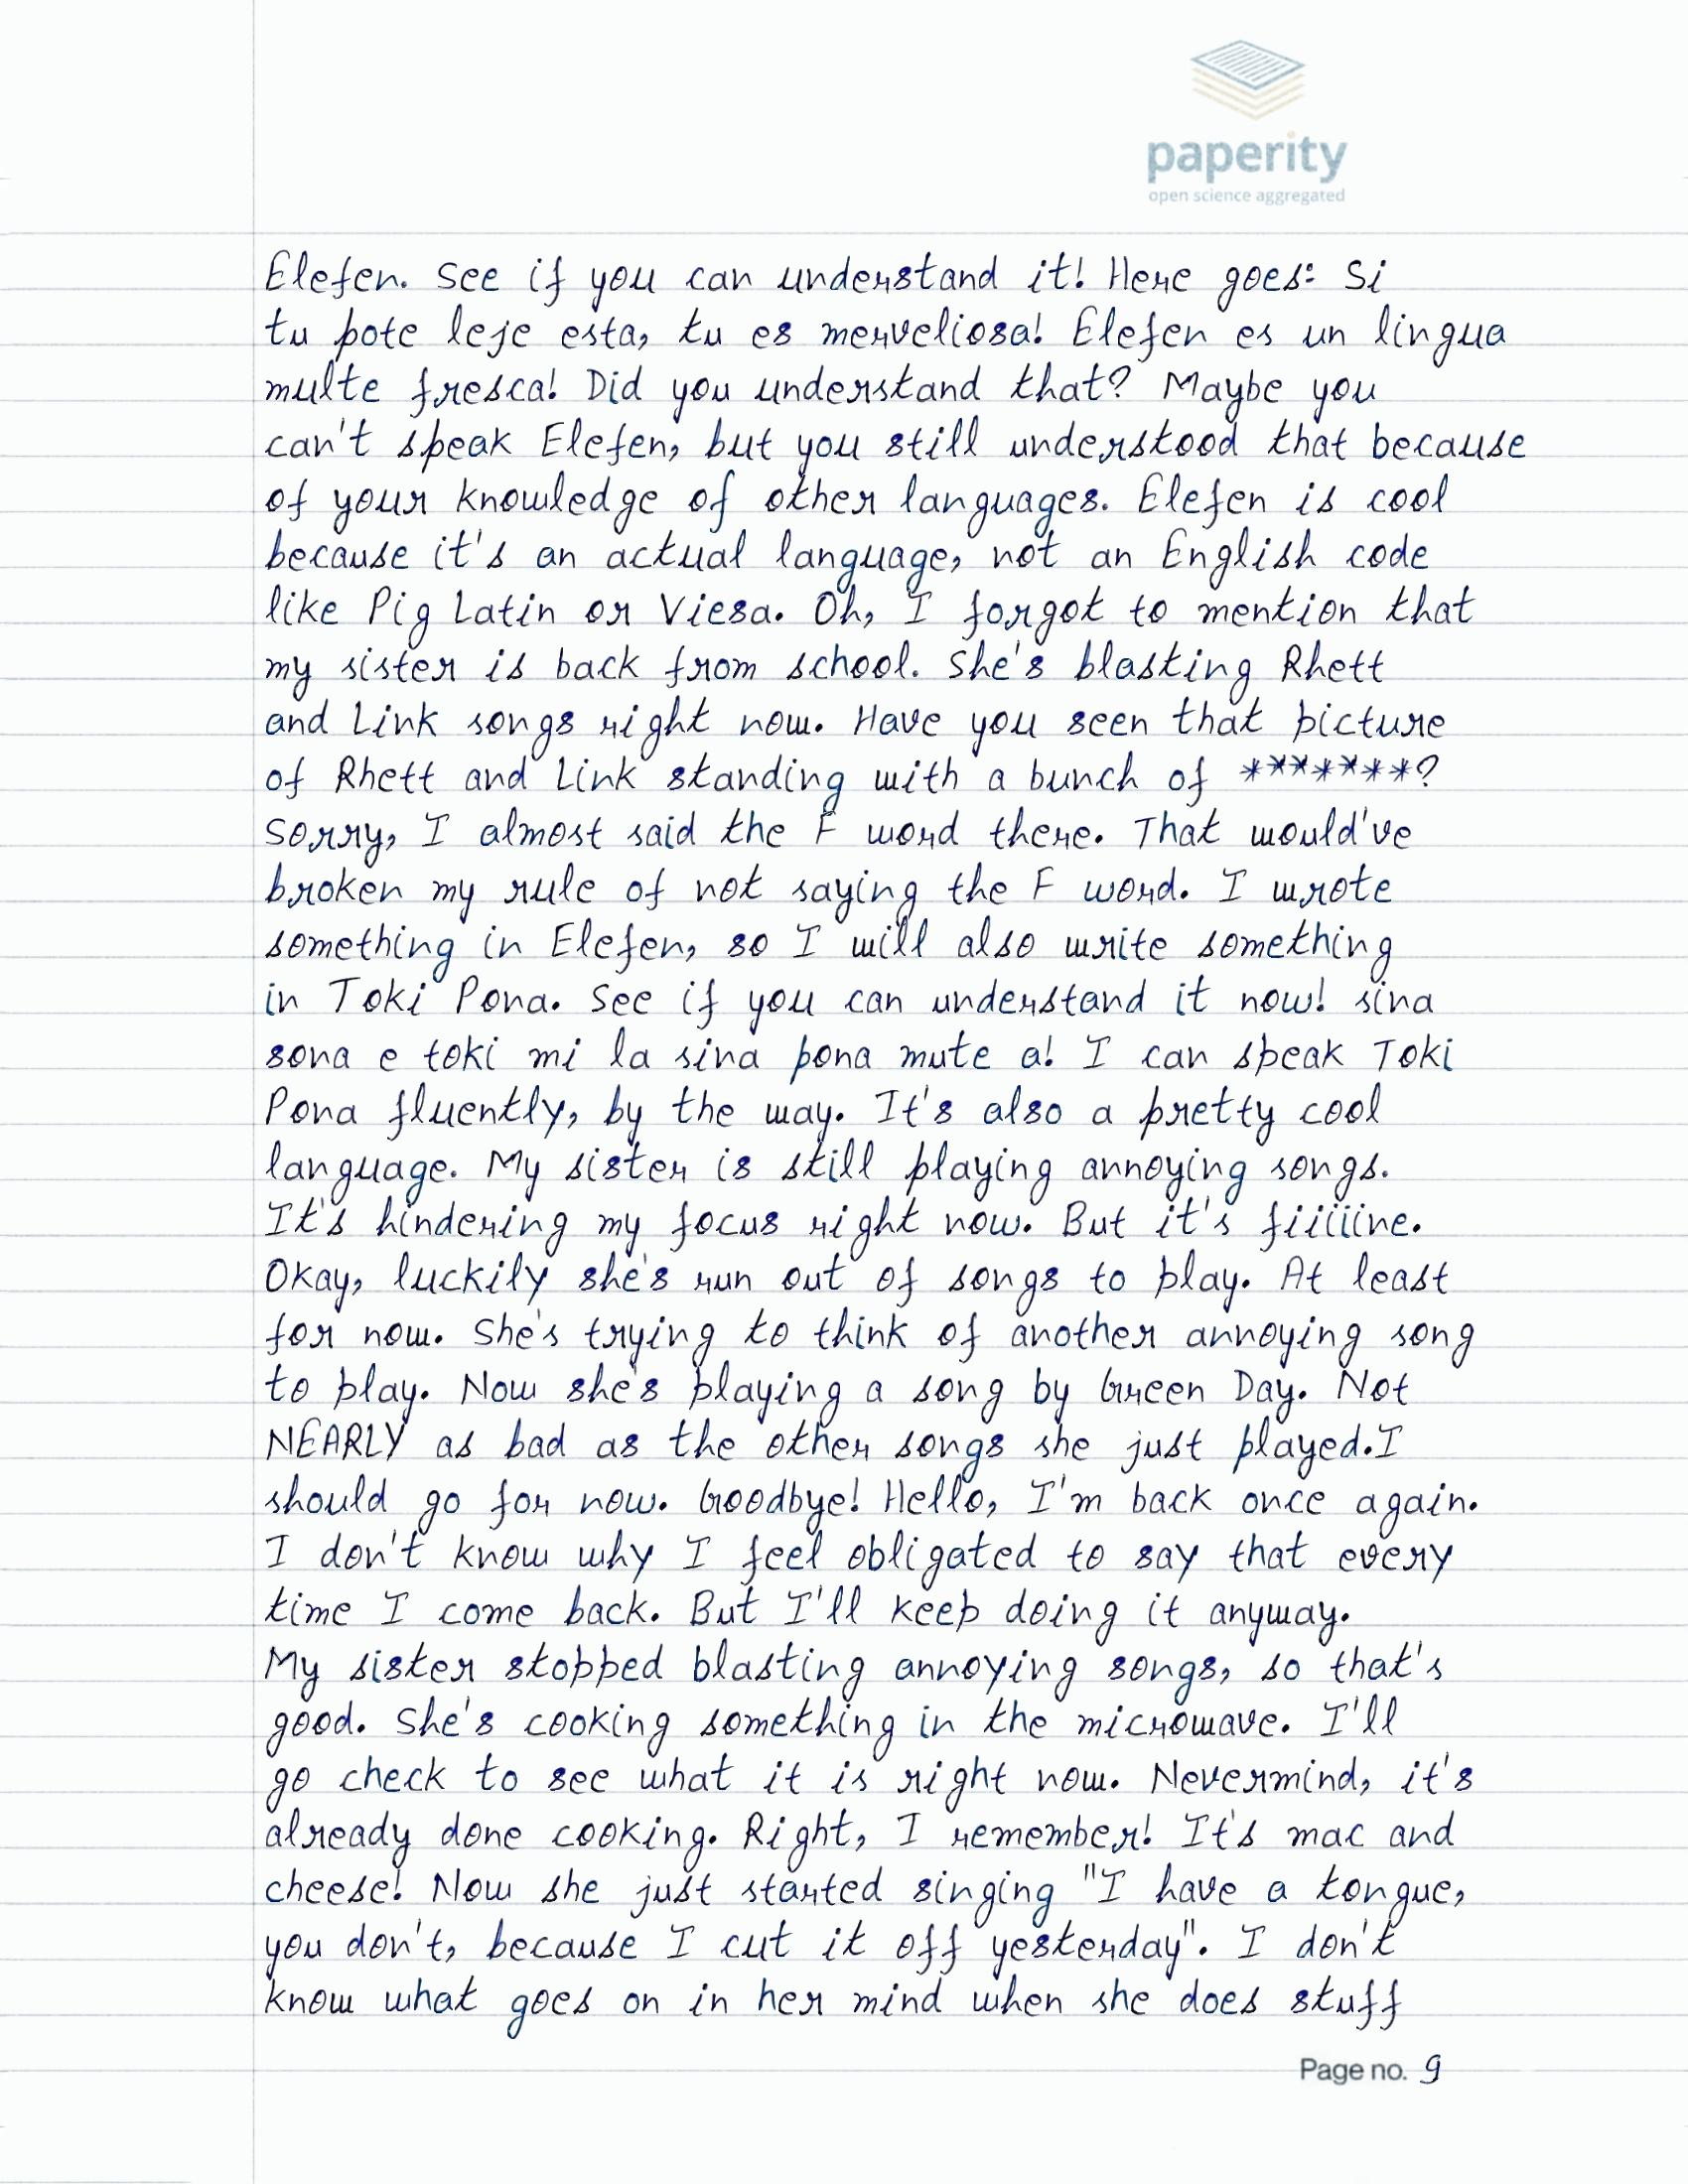 paperity
open science aggregated
Elefen. See if you can understand it! Here goes: Si
tu pote leje esta, tu es merveliosa! Elefen es un lingua
multe fresca! Did you understand that? Maybe you
can't speak Elefen, but you still understood that because
of your knowledge of other languages. Elefen is cool
because it's an actual language, not an English code
like Pig Latin or Viesa. Oh, I forgot to mention that
my sister is back from school. She's blasting Rhett
and Link songs right now. Have you seen that picture
of Rhett and Link standing with a bunch of *******?
Sorry, I almost said the F word there. That would've
broken my rule of not saying the F word. I wrote
something in Elefen, so I will also write something
in Toki Pona. See if you can understand it now! sina
sona e toki mi la sina pona mute a! I can speak Toki
Pona fluently, by the way. It's also a pretty cool
language. My sister is still playing annoying songs.
It's hindering my focus right now. But it's fiiiiine.
Okay, luckily she's run out of songs to play. At least
for now. She's trying to think of another annoying song
to play. Now she's playing a song by Green Day. Not
NEARLY as bad as the other songs she just played.I
should go for now. Goodbye! Hello, I'm back once again.
I don't know why I feel obligated to say that every
time I come back. But I'll keep doing it anyway.
My sister stopped blasting annoying songs, so that's
good. She's cooking something in the microwave. I'll
go check to see what it is right now. Nevermind, it's
already done cooking. Right, I remember! It's mac and
cheese! Now she just started singing "I have a tongue,
you don't, because I cut it off yesterday". I don't
know what goes on in her mind when she does stuff
Page no. 9